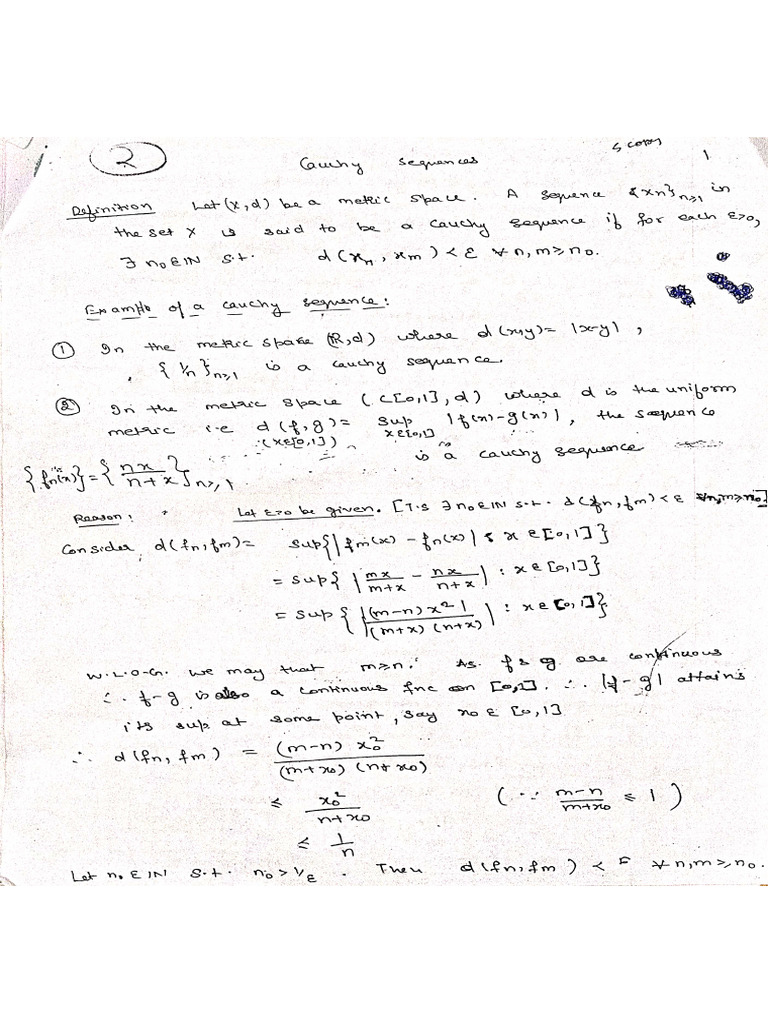 2 Cauchy Sequences 1
Definition Let (X,d) be a metric space. A sequence {xn}n≥1 in
the set X is said to be a Cauchy sequence if for each ε>0,
∃ n0∈IN s.t. d(xn, xm) < ε ∀ n, m ≥ n0.
Example of a cauchy sequence:
① In the metric space (R,d) where d(x,y) = |x-y| ,
{1/n}n≥1 is a cauchy sequence.
② In the metric space (C[0,1], d) where d is the uniform
metric i.e d(f,g) = sup x∈[0,1] |f(x)-g(x)|, the sequence
(x∈[0,1])
is a cauchy sequence
{fn(x)} = {nx/(n+x)}n≥1
Reason: Let ε>0 be given. [T.S ∃ n0∈IN s.t. d(fn, fm) < ε ∀n,m≥n0]
Consider d(fn, fm) = sup{|fm(x) - fn(x)| : x ∈ [0,1]}
= sup{|mx/(m+x) - nx/(n+x)| : x ∈ [0,1]}
= sup{|(m-n)x²|/((m+x)(n+x)) : x ∈ [0,1]}
W.L.O.G. we may that m≥n. As f & g are continuous
∴ f-g is also a continuous fnc on [0,1]. ∴ |f-g| attains
its sup at some point, say x0 ∈ [0,1]
∴ d(fn, fm) = (m-n) x0²/((m+x0)(n+x0))
≤ x0²/(n+x0) (∵ (m-n)/(m+x0) ≤ 1)
≤ 1/n
Let n0 ∈ IN s.t. n0 > 1/ε. Then d(fn, fm) < ε ∀ n, m ≥ n0.